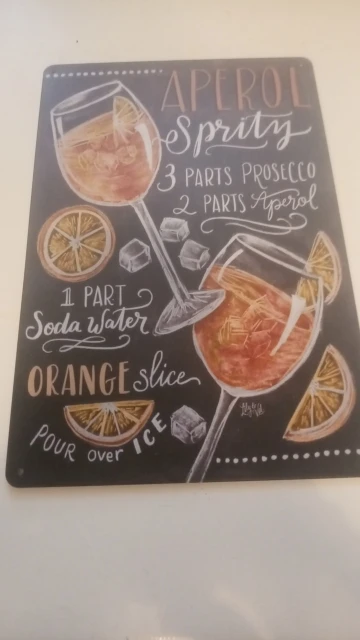 APEROL
Spritz
3 PARTS PROSECCO
2 PARTS Aperol
1 PART
Soda Water
ORANGE slice
POUR over ICE